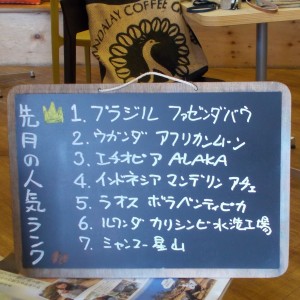 MANDALAY COFFEE G
先月の人気ランク
1. ブラジル ファゼンダバウ
2. ウガンダ アフリカンムーン
3. エチオピア ALAKA
4. インドネシア マンデリン アチェ
5. ラオス ボラベンティピカ
6. ルワンダ カリシンビ水洗工場
7. ミャンマー星山